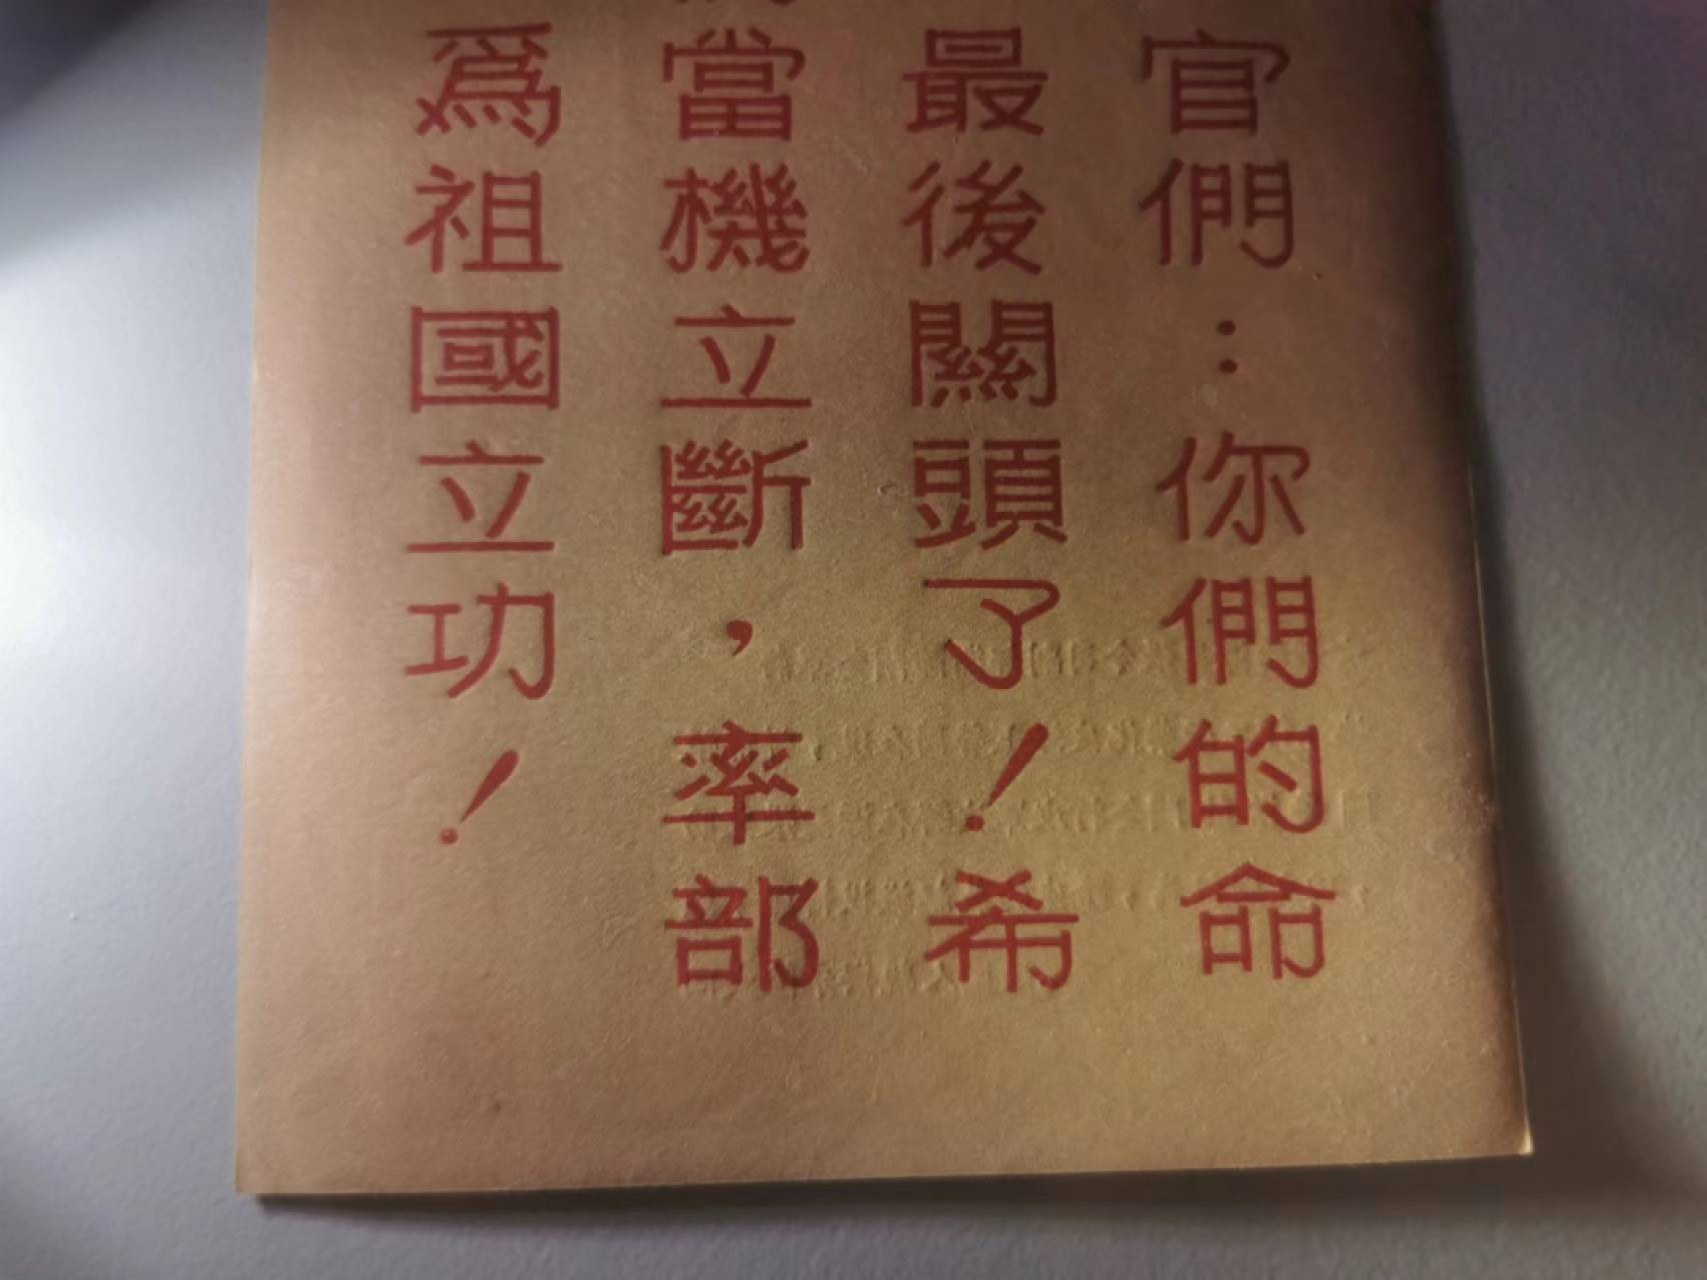 官們：你們的命
最後關頭了！希
當機立斷，率部
爲祖國立功！